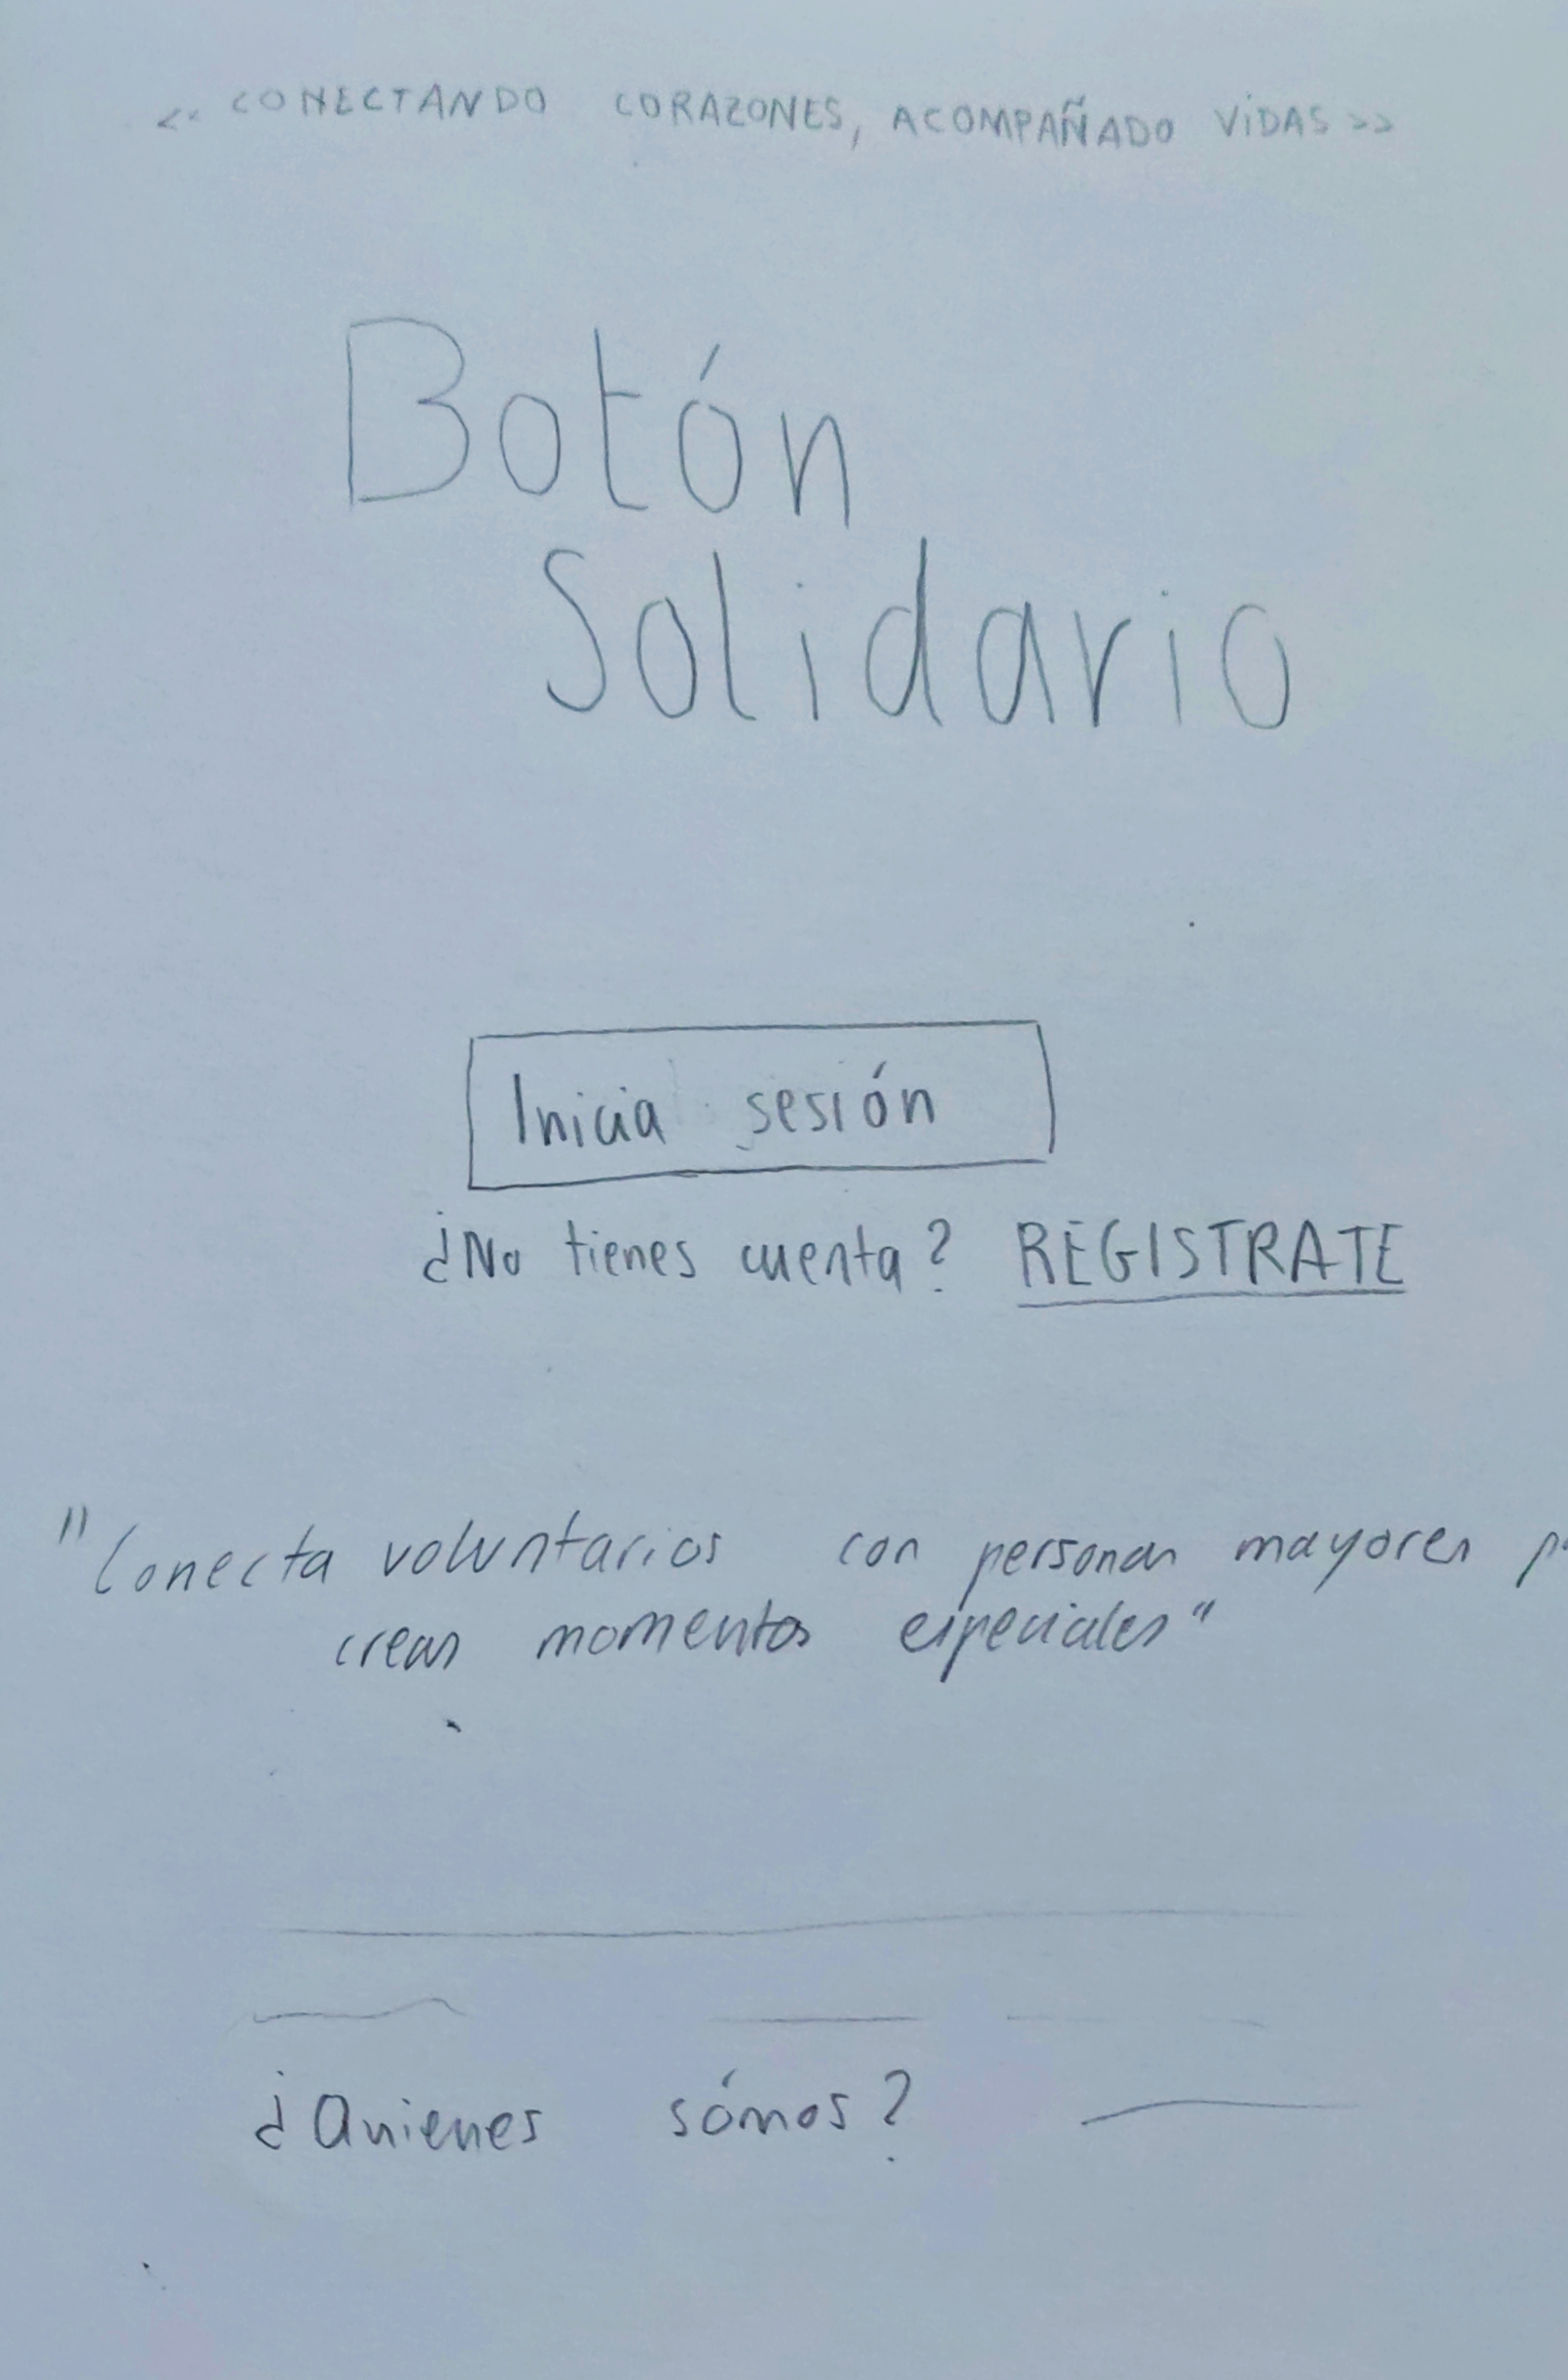 << CONECTANDO CORAZONES, ACOMPAÑADO VIDAS >>
Botón
Solidario
Inicia sesión
¿No tienes cuenta? REGISTRATE
"Conecta voluntarios con personas mayores
crear momentos especiales"
¿Quienes sómos?